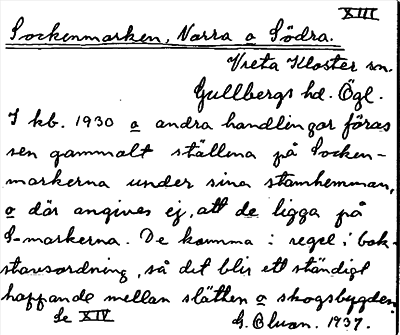 XIII
Sockenmarken, Norra o Södra.
Vreta Kloster sn.
Gullbergs hd. Ögl.
I kb. 1930 o andra handlingar föras
sen gammalt ställena på Socken-
markerna under sina stamhemman,
o där angives ej, att de ligga på
S-markerna. De komma i regel i bok-
stavsordning, så det blir ett ständigt
hoppande mellan slätten o skogsbygden.
Se XIV
G. 1937.